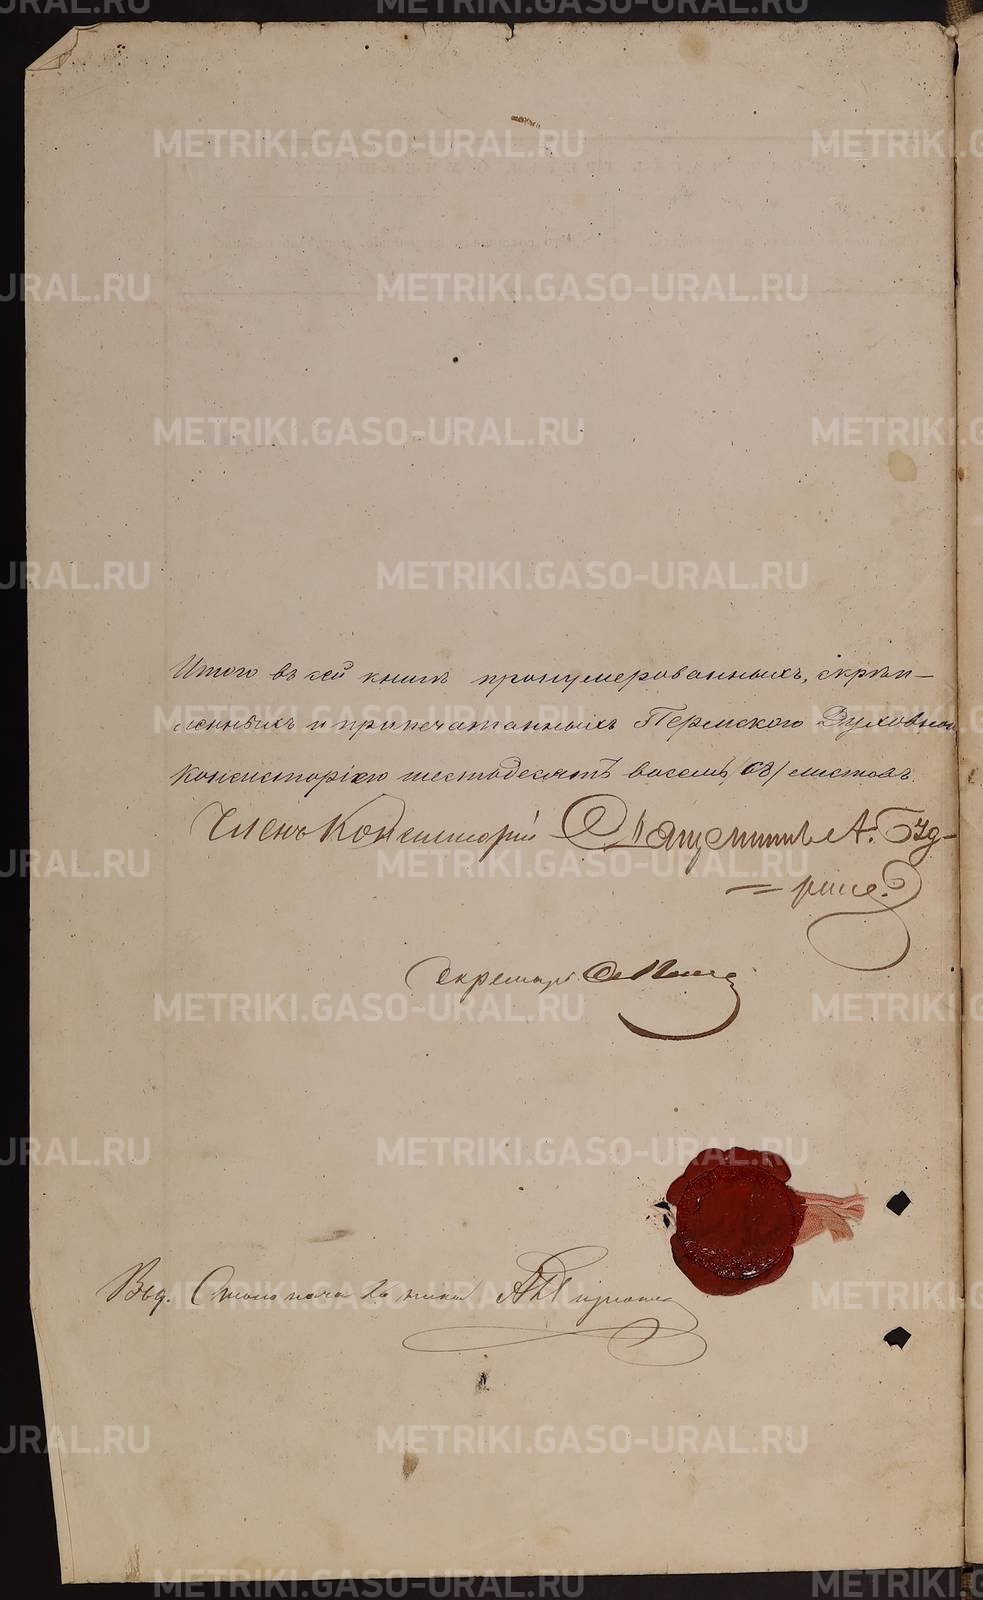 METRIKI.GASO-URAL.RU
Итого въ сей книгѣ пронумерованныхъ, скрѣп-
ленныхъ и пропечатанныхъ Пермскою Духовною
Консисторіею шестьдесятъ восемь /68/ листовъ.
Членъ Консисторіи Священникъ А. Буд-
= рине.
Секретарь
Вид. Столоначальника